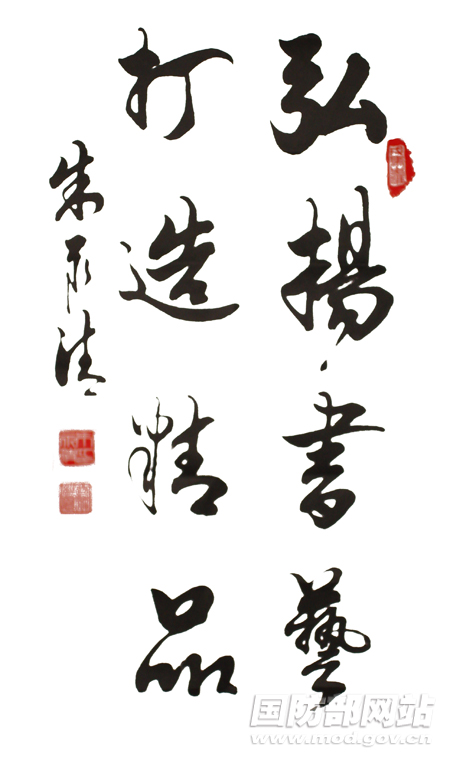 弘揚書藝
打造精品
朱永清
国防部网站
www.mod.gov.cn